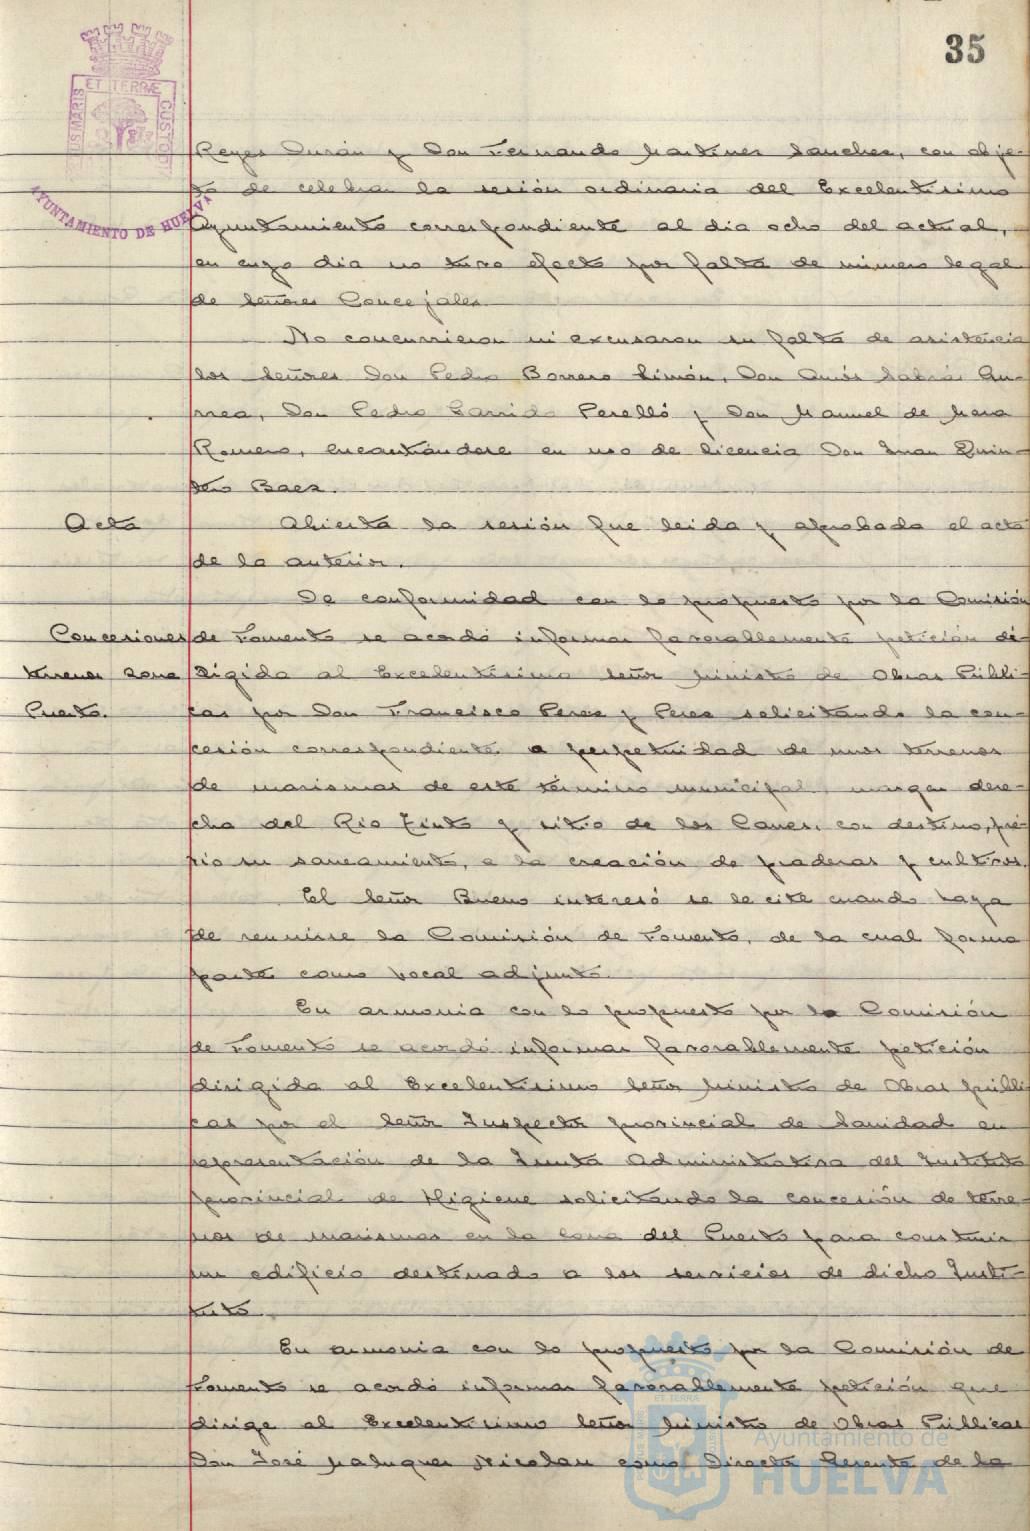 35
ET TERRÆ
CUSTODI
AYUNTAMIENTO DE HUELVA
Reyes Durán y Don Fernando Martinez Sanchez, con obje-
to de celebrar la sesión ordinaria del Excelentisimo
Ayuntamiento correspondiente al dia ocho del actual,
en cuyo dia no tuvo efecto por falta de número legal
de señores Concejales.
No concurrieron ni excusaron su falta de asistencia
los señores Don Pedro Borrero Limón, Don
Don Pedro Garrido Perelló y Don Manuel de Mora
Romero, encontrándose en uso de licencia Don Juan Quin-
tero Baez.
Acta
Abierta la sesión fue leida y aprobada el acta
de la anterior.
De conformidad con lo propuesto por la Comisión
Concesiones
de Fomento se acordó informar favorablemente petición di-
terrenos zona
rigida al Excelentisimo Señor Ministro de Obras Públi-
Puerto.
cas por Don Francisco Perez y Perez solicitando la con-
cesión correspondiente a perpetuidad de unos terrenos
de marismas de este término municipal, margen dere-
cha del Rio Tinto y sitio de los Canes, con destino, pré-
vio su saneamiento, a la creación de praderas y cultivos.
El Señor Bueno interesó se le cite cuando haya
de reunirse la Comisión de Fomento, de la cual forma
parte como vocal adjunto.
En armonia con lo propuesto por la Comisión
de Fomento se acordó informar favorablemente petición
dirigida al Excelentisimo Señor Ministro de Obras públi-
cas por el Señor Inspector provincial de Sanidad en
representación de la Junta Administrativa del Instituto
provincial de Higiene solicitando la concesión de terre-
nos de marismas en la zona del Puerto para construir
un edificio destinado a los servicios de dicho Insti-
tuto.
En armonia con lo propuesto por la Comisión de
Fomento se acordó informar favorablemente petición que
dirige al Excelentisimo Señor Ministro de Obras Públicas
Don José Maluquer Nicolau como Director Gerente de la
Ayuntamiento de
HUELVA